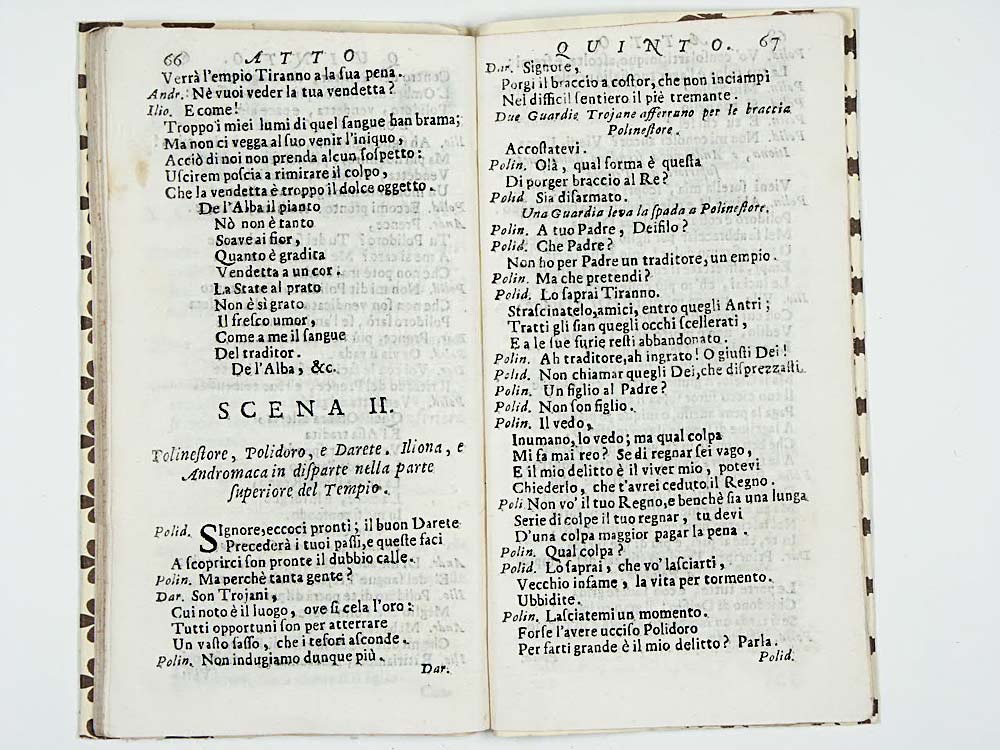 66 ATTO
Verrà l'empio Tiranno a la sua pena.
Andr. Nè vuoi veder la tua vendetta?
Ilio. E come!
Troppo i miei lumi di quel sangue han brama;
Ma non ci vegga al suo venir l'iniquo,
Acciò di noi non prenda alcun sospetto:
Uscirem poscia a rimirare il colpo,
Che la vendetta è troppo il dolce oggetto.
De l'Alba il pianto
Nò non è tanto
Soave ai fior,
Quanto è gradita
Vendetta a un cor.
La State al prato
Non è sì grato
Il fresco umor,
Come a me il sangue
Del traditor.
De l'Alba, &c.
SCENA II.
Polinestore, Polidoro, e Darete. Iliona, e
Andromaca in disparte nella parte
superiore del Tempio.
Polid. SIgnore, eccoci pronti; il buon Darete
Precederà i tuoi passi, e queste faci
A scoprirci son pronte il dubbio calle.
Polin. Ma perchè tanta gente?
Dar. Son Trojani,
Cui noto è il luogo, ove si cela l'oro:
Tutti opportuni son per atterrare
Un vasto sasso, che i tesori asconde.
Polin. Non indugiamo dunque più.
Dar.
QUINTO. 67
Dar. Signore,
Porgi il braccio a costor, che non inciampi
Nel difficil sentiero il piè tremante.
Due Guardie Trojane afferrano per le braccia
Polinestore.
Accostatevi.
Polin. Olà, qual forma è questa
Di porger braccio al Re?
Polid. Sia disarmato.
Una Guardia leva la spada a Polinestore.
Polin. A tuo Padre, Deifilo?
Polid. Che Padre?
Non ho per Padre un traditore, un empio.
Polin. Ma che pretendi?
Polid. Lo saprai Tiranno.
Strascinatelo, amici, entro quegli Antri;
Tratti gli sian quegli occhi scellerati,
E a le sue furie resti abbandonato.
Polin. Ah traditore, ah ingrato! O giusti Dei!
Polid. Non chiamar quegli Dei, che disprezzasti.
Polin. Un figlio al Padre?
Polid. Non son figlio.
Polin. Il vedo,
Inumano, lo vedo; ma qual colpa
Mi fa mai reo? Se di regnar sei vago,
E il mio delitto è il viver mio, potevi
Chiederlo, che t'avrei ceduto il Regno.
Poli. Non vo' il tuo Regno, e benchè sia una lunga
Serie di colpe il tuo regnar, tu devi
D'una colpa maggior pagar la pena.
Polin. Qual colpa?
Polid. Lo saprai, che vo' lasciarti,
Vecchio infame, la vita per tormento.
Ubbidite.
Polin. Lasciatemi un momento.
Forse l'avere ucciso Polidoro
Per farti grande è il mio delitto? Parla.
Polid.